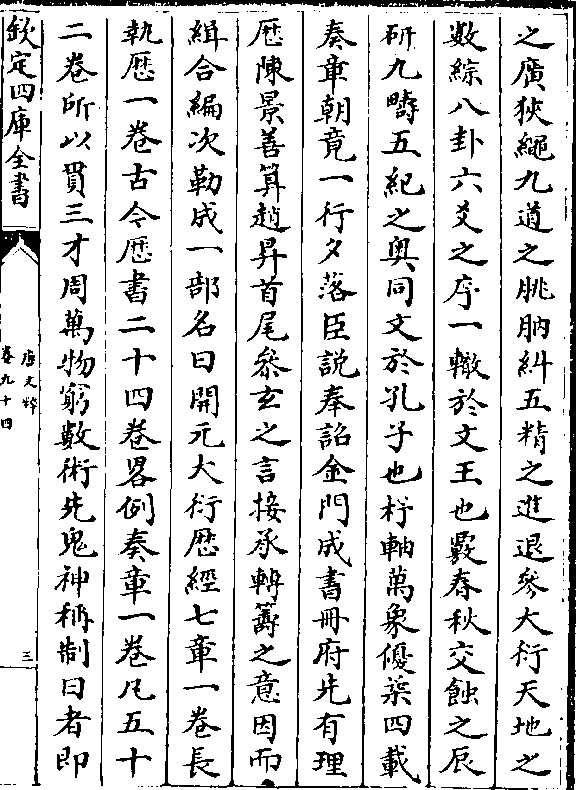 之廣狹繩九道之朓朒糾五精之進退參大衍天地之
數綜八卦六爻之序一轍於文王也覈春秋交蝕之辰
研九疇五紀之奧同文於孔子也杼軸萬象優築四載
奏章朝竟一行夕落臣說奉詔金門成書冊府先有理
歴陳景善算趙昇首尾參玄之言接承轉籌之意因而
緝合編次勒成一部名曰開元大衍歴經七章一卷長
執歴一卷古今歴書二十四卷畧例奏章一卷凡五十
二卷所以貫三才周萬物窮數術先鬼神稱制曰者即
欽定四庫全書
唐文粹
卷九十四
三